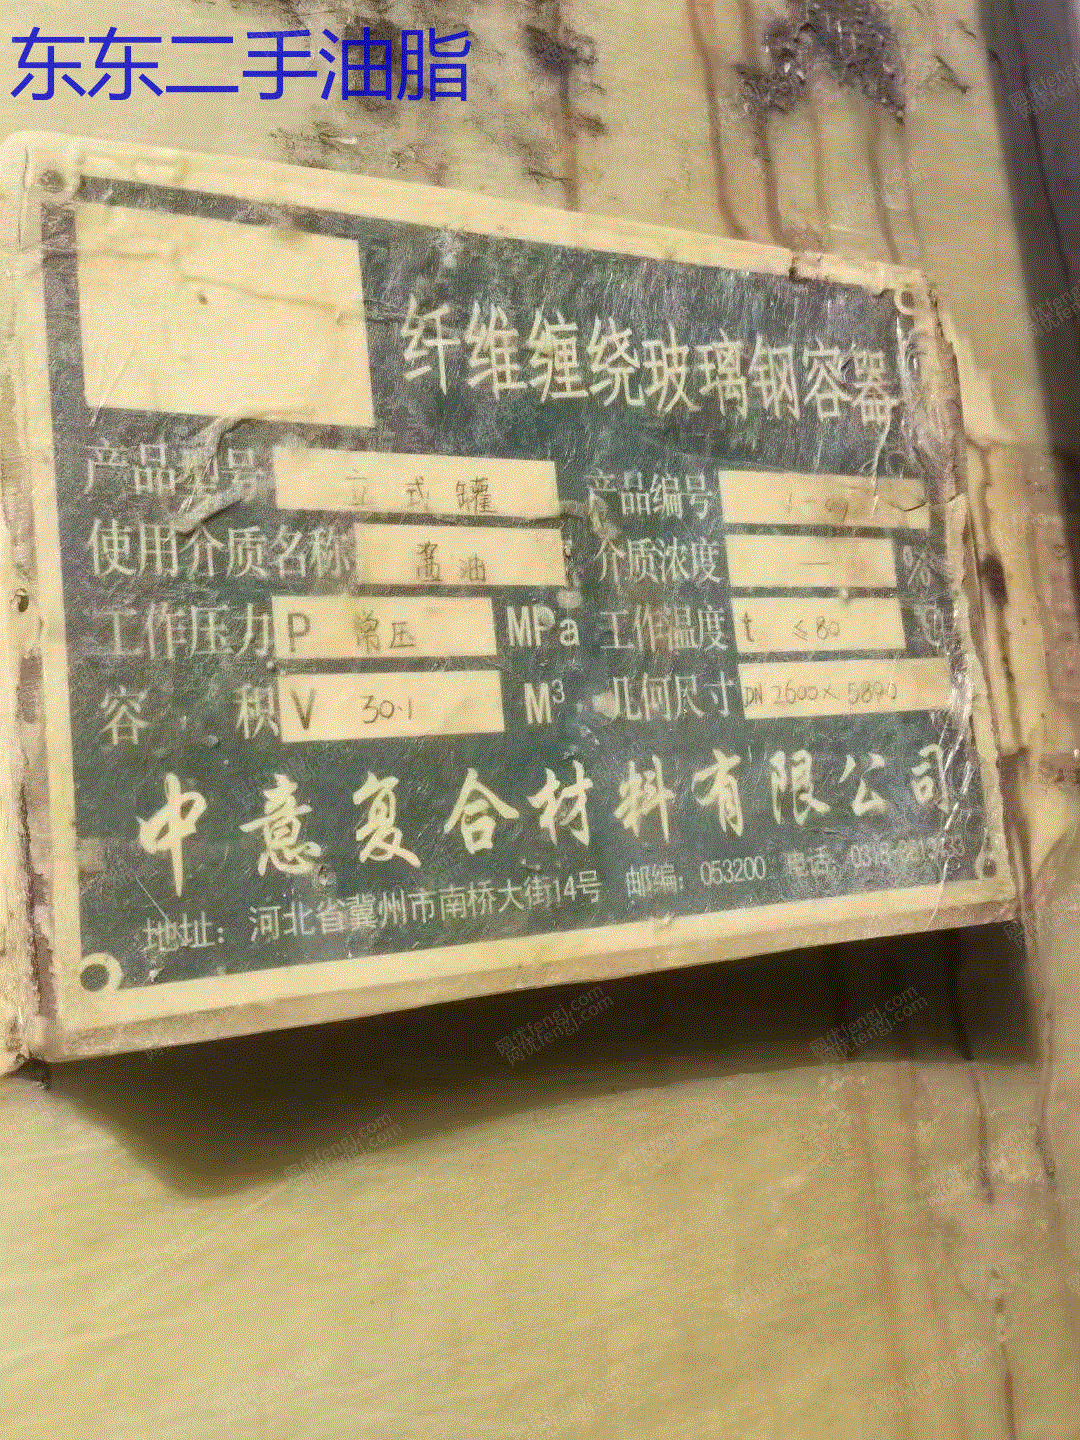 东东二手油脂
纤维缠绕玻璃钢容器
产品型号 立式罐 产品编号
使用介质名称 酱油 介质浓度 — %
工作压力 P 常压 MPa 工作温度 t ≤80 ℃
容积 V 30.1 M³ 几何尺寸 DN 2600×5800
中意复合材料有限公司
地址：河北省冀州市南桥大街14号 邮编：053200 电话：
网优fengj.com